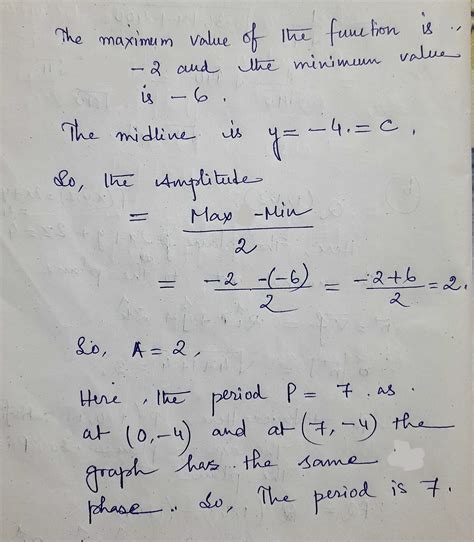 The maximum value of the function is
-2 and the minimum value
is -6.
The midline is y = -4. = C.
So, the Amplitude
= Max - Min / 2
= -2 -(-6) / 2 = -2+6 / 2 = 2.
So, A = 2,
Here, the period P = 7. as.
at (0, -4) and at (7, -4) the
graph has the same
phase. So, The period is 7.